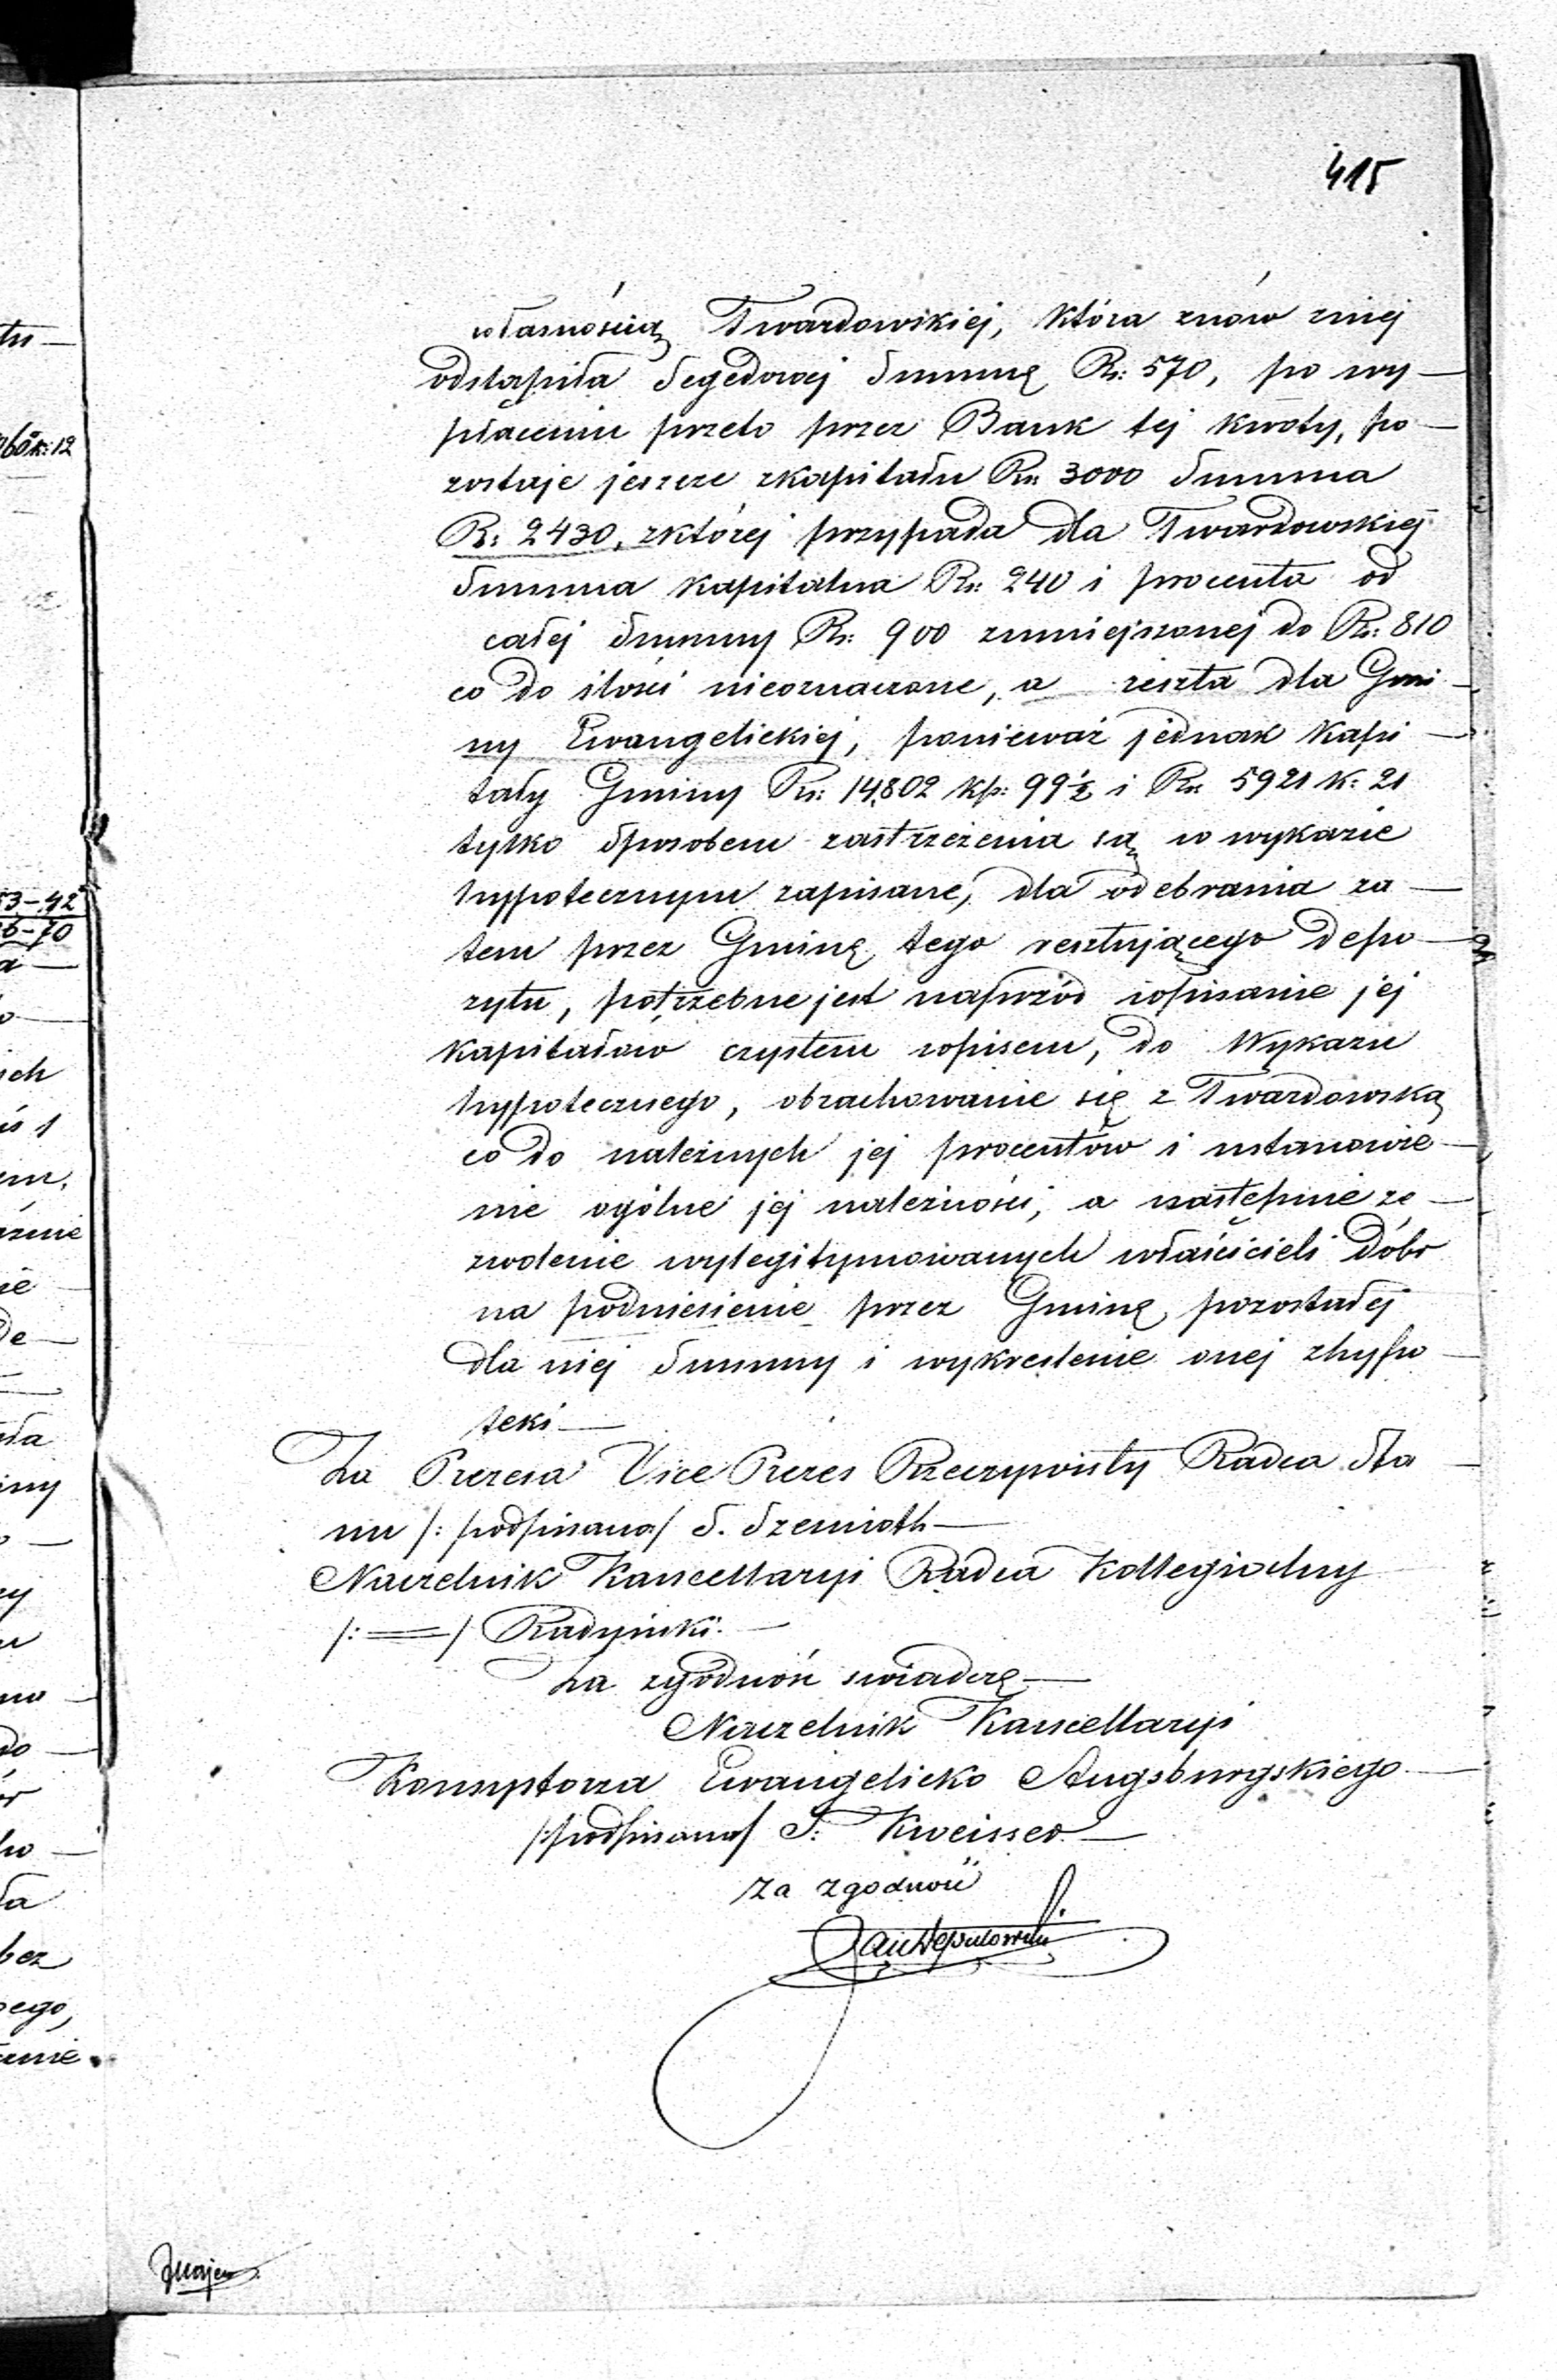 415
własnością Twardowskiej, która znów zniej
odstąpiła Segedowej Summę Rs: 570, po wy—
płaceniu przeto przez Bank tej kwoty, po—
zostaje jeszcze zkapitału Rs: 3000 Summa
Rs: 2430, zktórej przypada dla Twardowskiej
Summa kapitalna Rs: 240 i procenta od
całej Summy Rs: 900 zmniejszonej do Rs: 810
co do ilości nieoznaczone, a reszta dla Gmi—
ny Ewangelickiej, ponieważ jednak kapi—
tały Gminy Rs: 14,802 kp: 99½ i Rs: 5921 k: 21
tylko sposobem zastrzeżenia są w wykazie
hypotecznym zapisane, dla odebrania za—
tem przez Gminę tego resztującego depo—
zytu, potrzebne jest naprzód wpisanie jej
kapitałów czystem wpisem, do Wykazu
hypotecznego, obrachowanie się z Twardowską
co do należnych jej procentów i ustanowie—
nie ogólne jej należności, a następnie ze—
zwolenie wylegitymowanych właścicieli dóbr
na podniesienie przez Gminę pozostałej
dla niej Summy i wykreślenie onej zhypo—
teki—
Za Prezesa Vice Prezes Rzeczywisty Radca Sta—
nu /: podpisano/ S. Szemioth—
Naczelnik Kancellaryi Radca Kollegialny
/: = / Radyński.—
Za zgodność świadczę—
Naczelnik Kancellaryi
Konsystorza Ewangelicko Augsburgskiego—
/:podpisano/ T: Kweisser—
Za zgodność